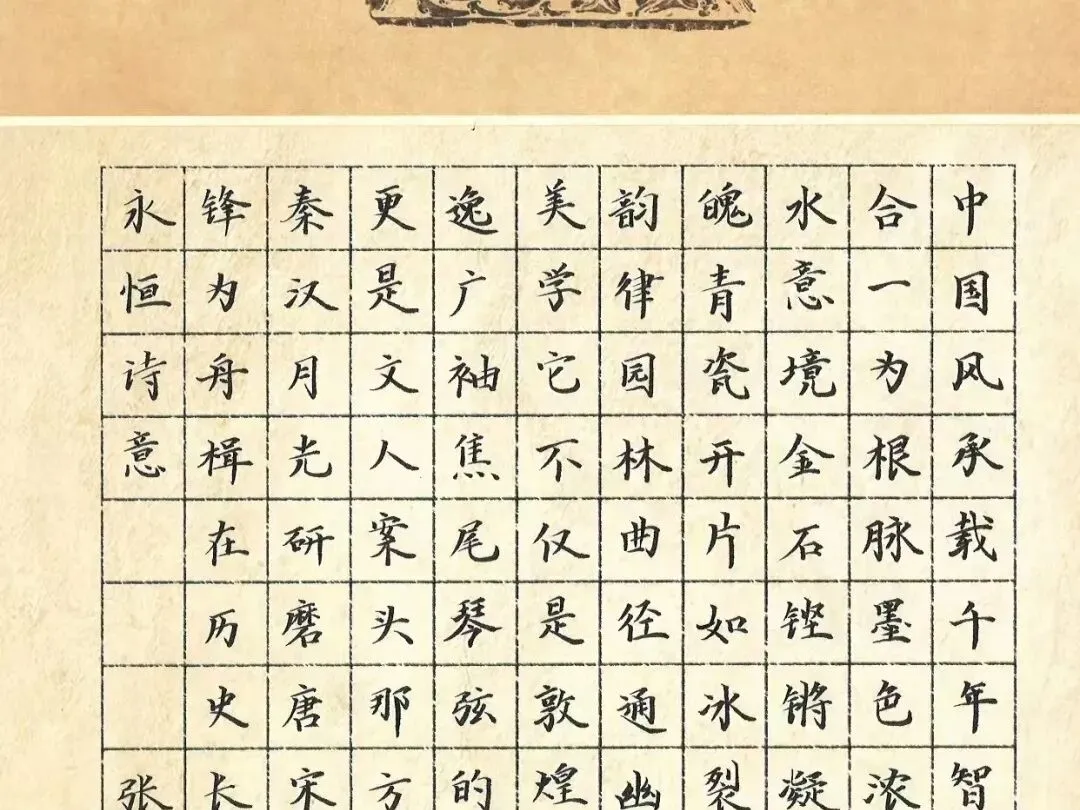 中国风承载千年智
合一为根脉墨色浓
水意境金石铿锵凝
魄青瓷开片如冰裂
韵律园林曲径通幽
美学它不仅是敦煌
逸广袖焦尾琴弦的
更是文人案头那方
秦汉月光研磨唐宋
锋为舟楫在历史长
永恒诗意张